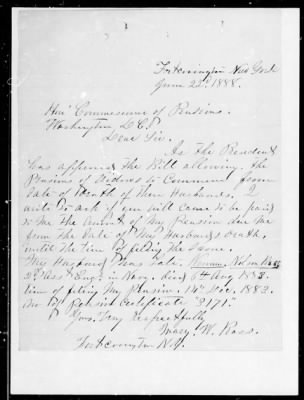 Fort Covington New York
June 22d 1888.
Hon' Commissioner of Pensions.
Washington D.C.
Dear Sir.
As the President
has approved the Bill allowing the
Pensions of Widows to Commence from
date of death of their Husbands. I
write to ask if you will cause to be paid
to me the amount of My Pension due me
from the date of My Husband's death,
until the time of filing the same.
My Husband was Late Nelson Ross
2d Ass't Eng. in Navy. died 6th Aug 188
time of filing My Pension. 14th Dec. 1883.
No of Pension Certificate "3171."
Yours, Very Respectfully
Mary. W. Ross.
Fort Covington N.Y.